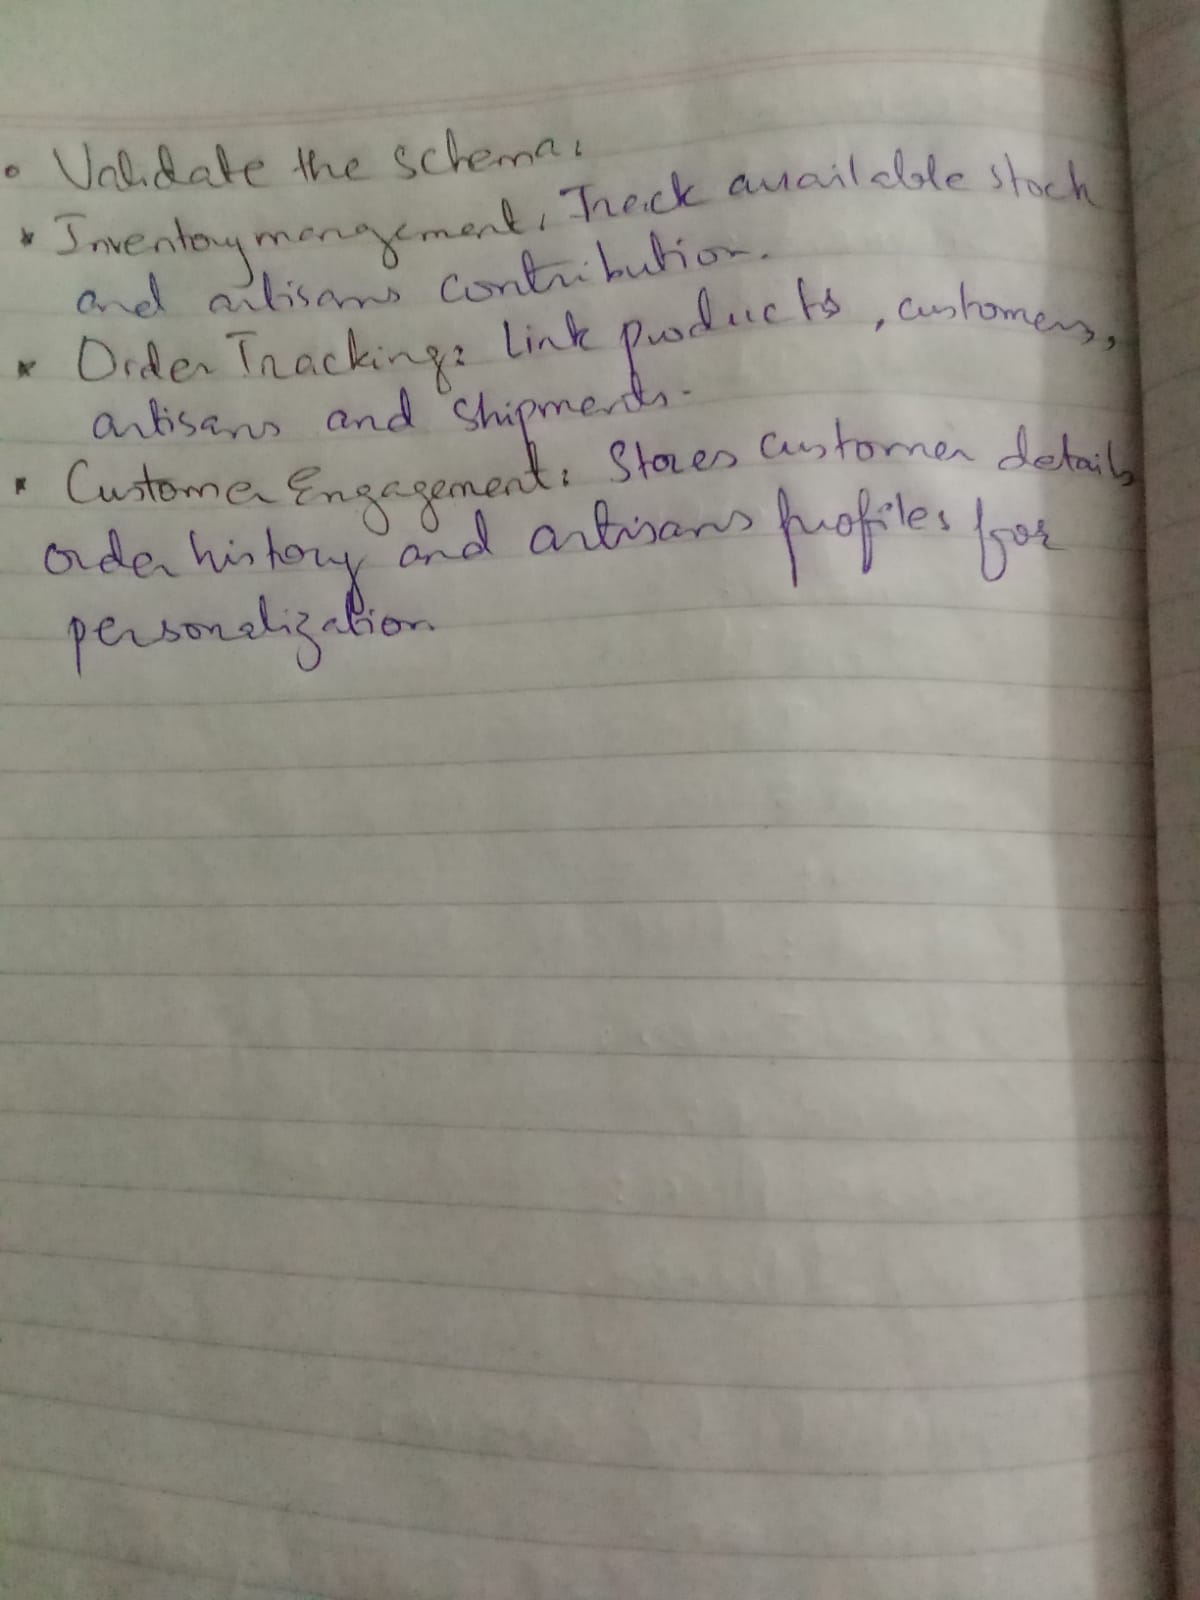 • Validate the schema:
* Inventory mangement, Track available stock
and artisans contribution.
* Order Tracking: Link products, customers,
artisans and shipments.
* Customer Engagement: Stores customer details
order history and artisans profiles for
personalization.